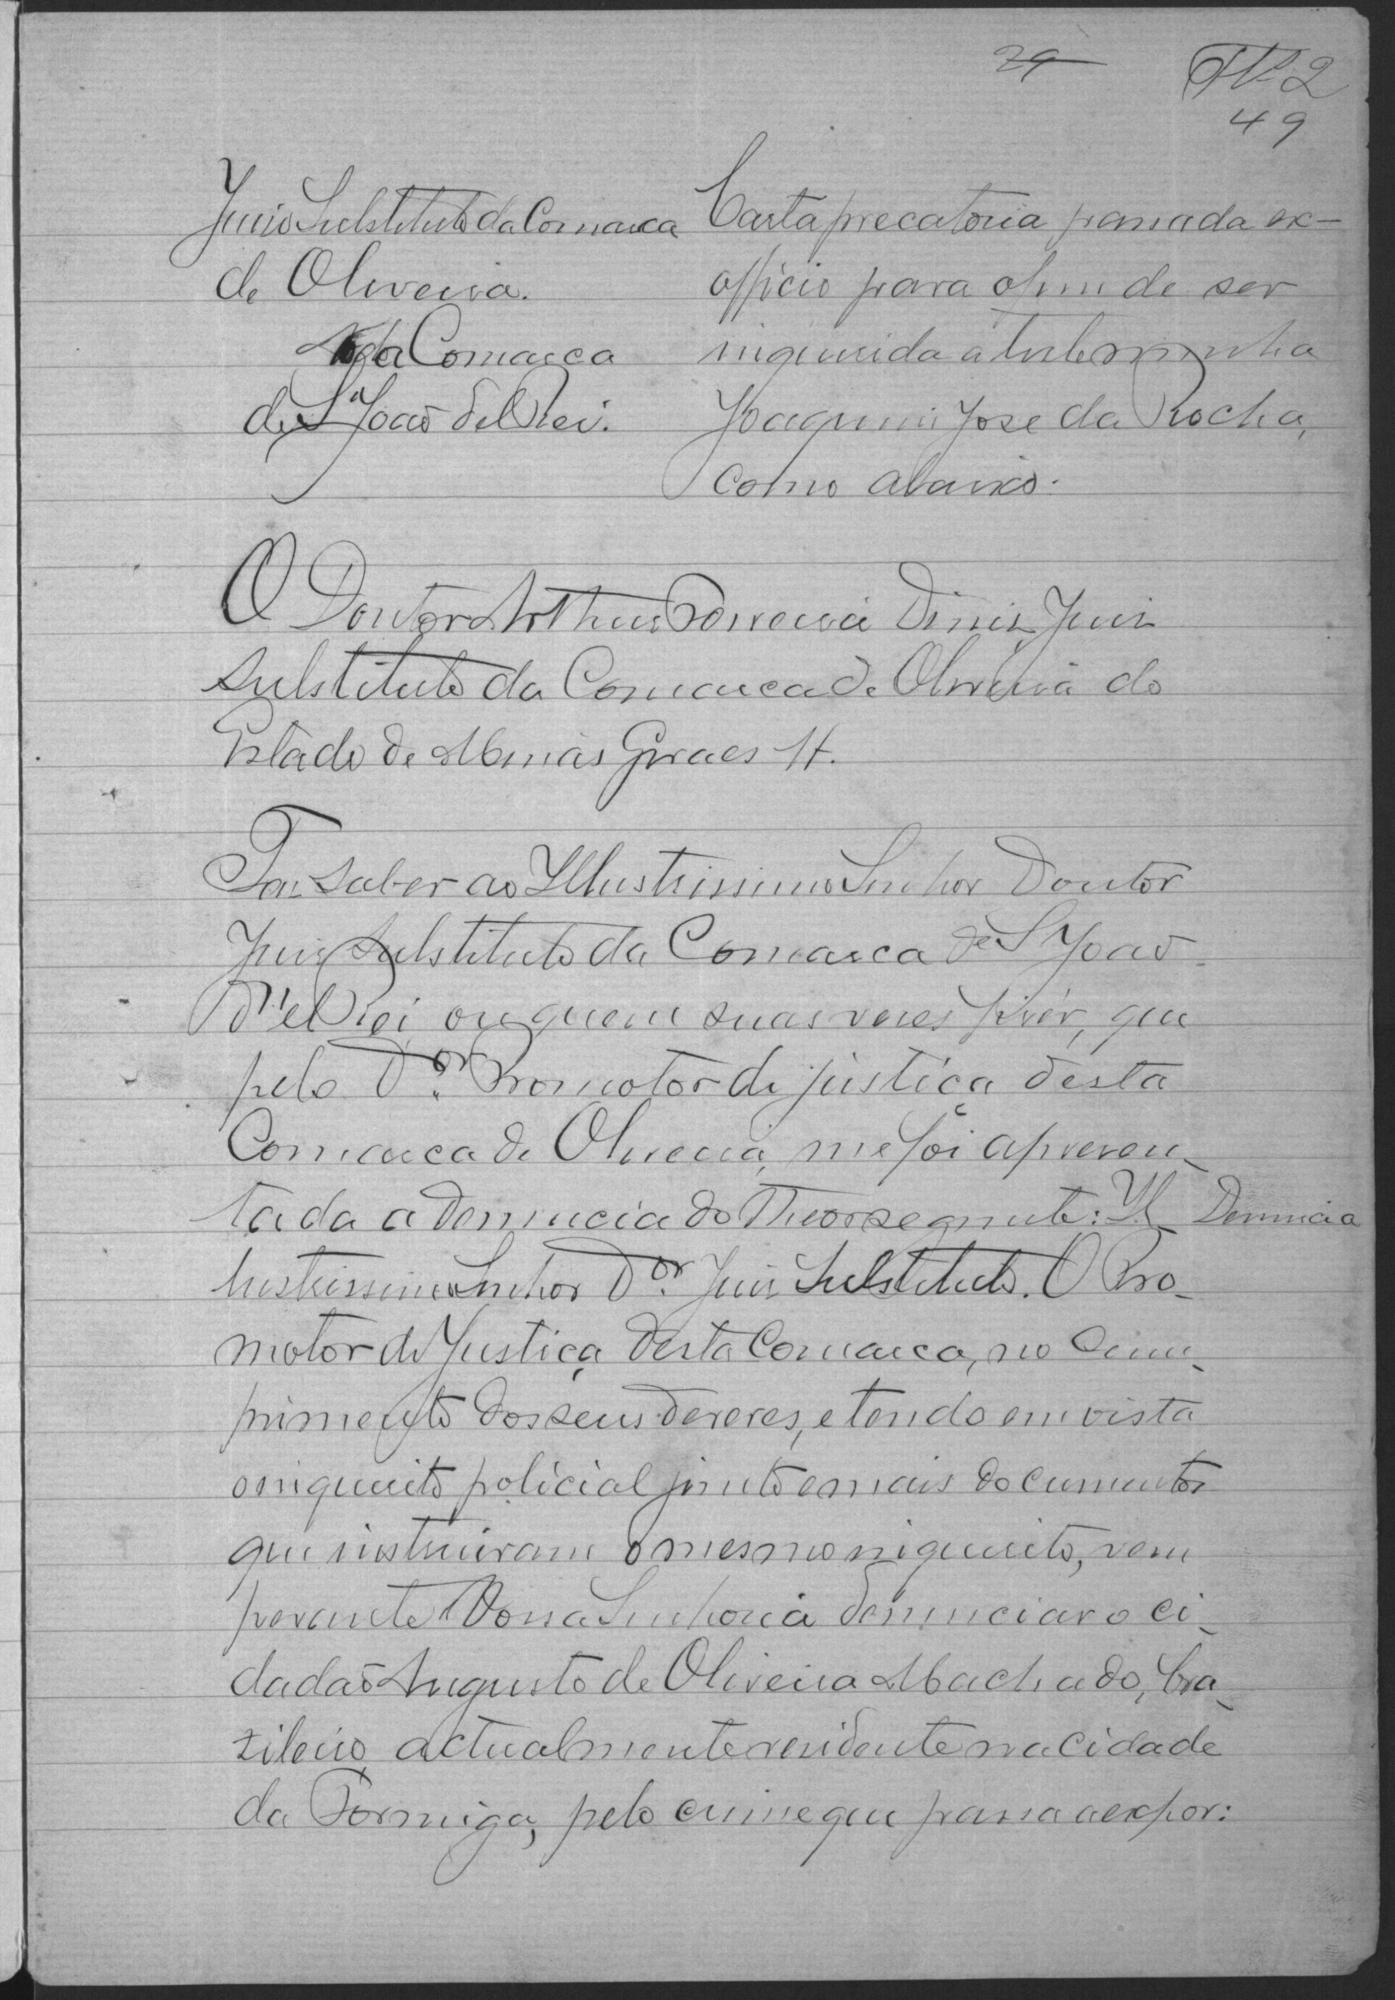 29 Fls 2
49
Juiso Substituto da Comarca
de Oliveira.
da Comarca
de S. João d'El Rei.
Carta precatoria passada ex-
officio para o fim de ser
inquirida a testemunha
Joaquim José da Rocha,
como abaixo.
O Doutor Arthur Ferreira Diniz, Juiz
Substituto da Comarca de Oliveira do
Estado de Minas Geraes H.
Faz saber ao Illustrissimo Senhor Doutor
Juiz Substituto da Comarca de S. João
d'El Rei ou quem suas veses fizér, que
pelo Dor. Promotor de justiça desta
Comarca de Oliveira, me foi apresen-
tada a denuncia do theor seguinte: Il-
Denuncia
lustrissimo Senhor Dor. Juiz Substituto. O Pro-
motor de Justiça desta Comarca, no cum-
primento dos seus deveres, e tendo em vista
o inquerito policial junto e mais documentos
que instruiram o mesmo inquerito, vem
perante Vossa Senhoria denunciar o ci-
dadão Augusto de Oliveira Machado, bra-
zileiro, actualmente residente na cidade
da Formiga, pelo crime que passa a expor: